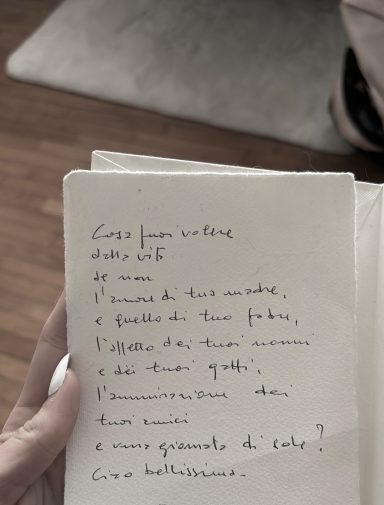 Cosa puoi volere
dalla vita
se non
l'amore di tua madre,
e quello di tuo padre,
l'affetto dei tuoi nonni
e dei tuoi gatti,
l'ammirazione dei
tuoi amici
e una giornata di sole?
Ciao bellissima.